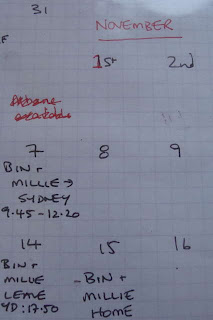 31
NOVEMBER
F
1st 2nd
7 8 9
BIN +
MILLIE →
SYDNEY
9.45-12.20
14 15 16
BIN +
MILLIE
LEAVE
YD: 17.50
- BIN +
MILLIE
HOME